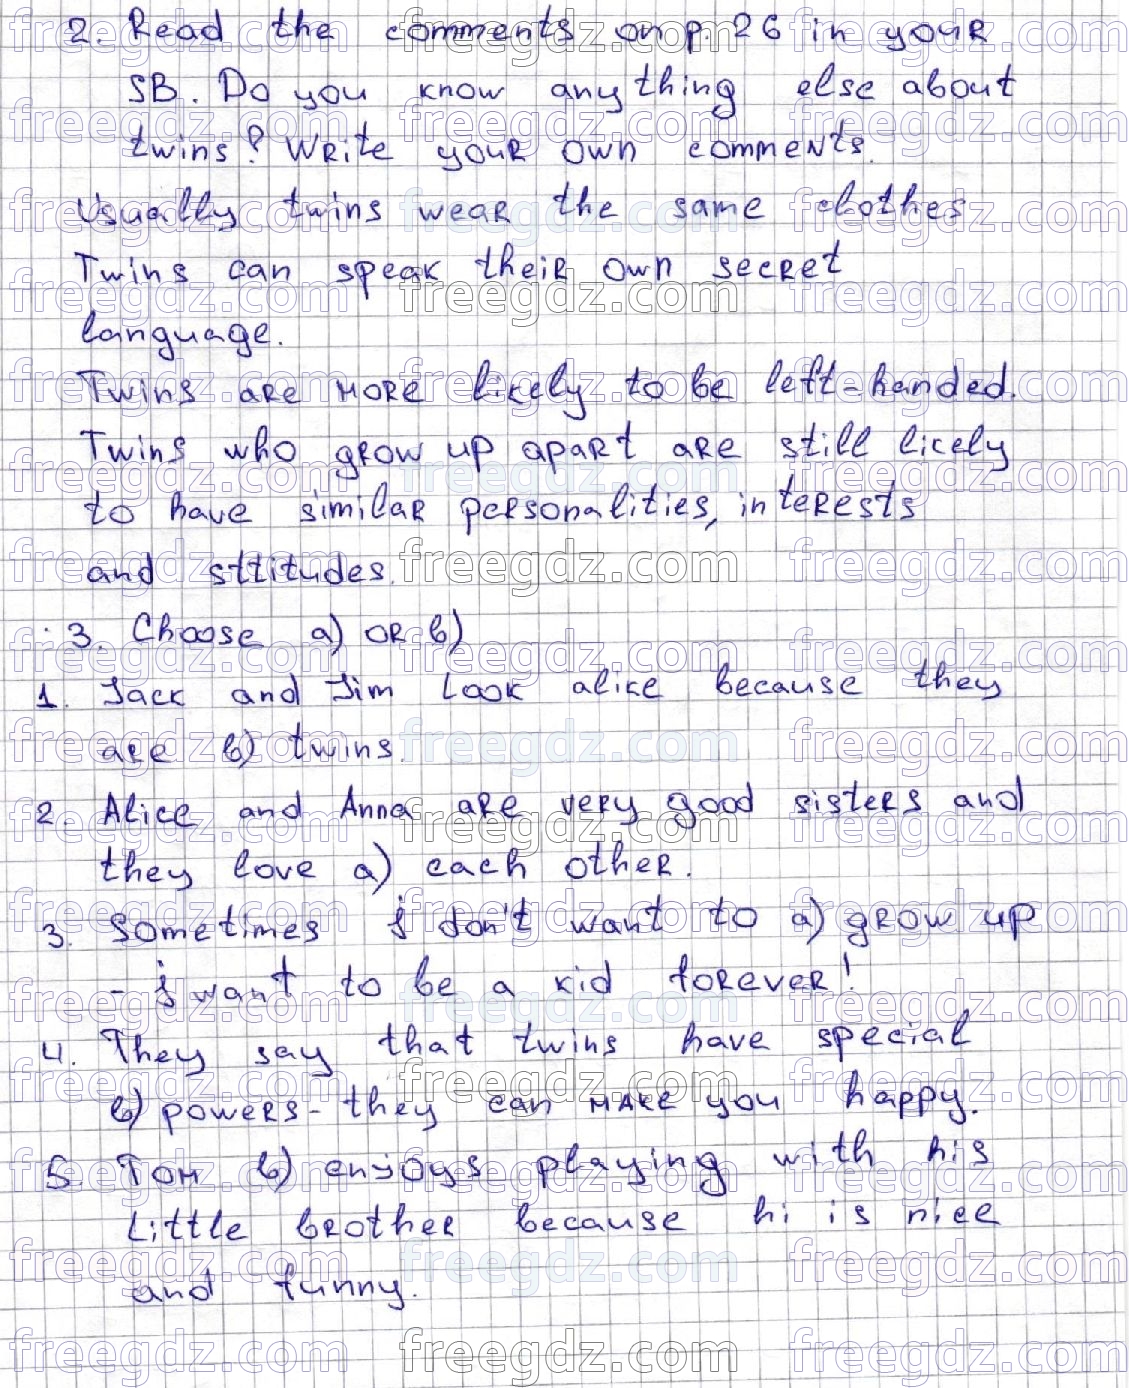 2. Read the comments on p. 26 in your
SB. Do you know anything else about
twins? Write your own comments.
Usually twins wear the same clothes
Twins can speak their own secret
language.
Twins are more likely to be left-handed.
Twins who grow up apart are still likely
to have similar personalities, interests
and sttitudes.
3. Choose a) or b)
1. Jack and Jim look alike because they
are b) twins.
2. Alice and Anna are very good sisters and
they love a) each other.
3. Sometimes I don't want to a) grow up
- I want to be a kid forever!
4. They say that twins have special
b) powers - they can make you happy.
5. Tom b) enjoys playing with his
little brother because hi is nice
and funny.
freegdz.com